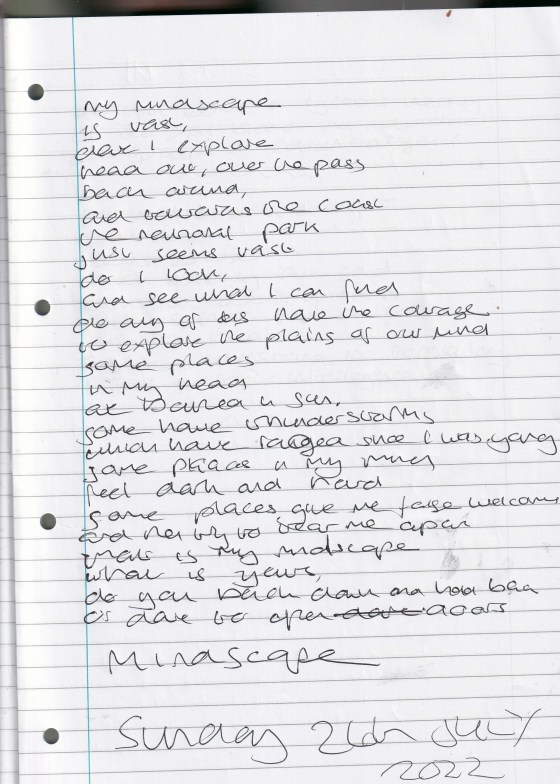 my mindscape
is vast,
dare I explore
head out, over the pass
back around,
and towards the coast
the neuronal park
just seems vast
do I look,
and see what I can find
do any of us have the courage
to explore the plains of our mind
some places
in my head
are bathed in sun,
some have thunderstorms
which have raged since I was young
some places in my mind
feel dark and hard
some places give me false welcome
and then try to tear me apart
that is my mindscape
what is yours,
do you back down and hold back
or dare to open doors
Mindscape
Sunday 24th July
2022